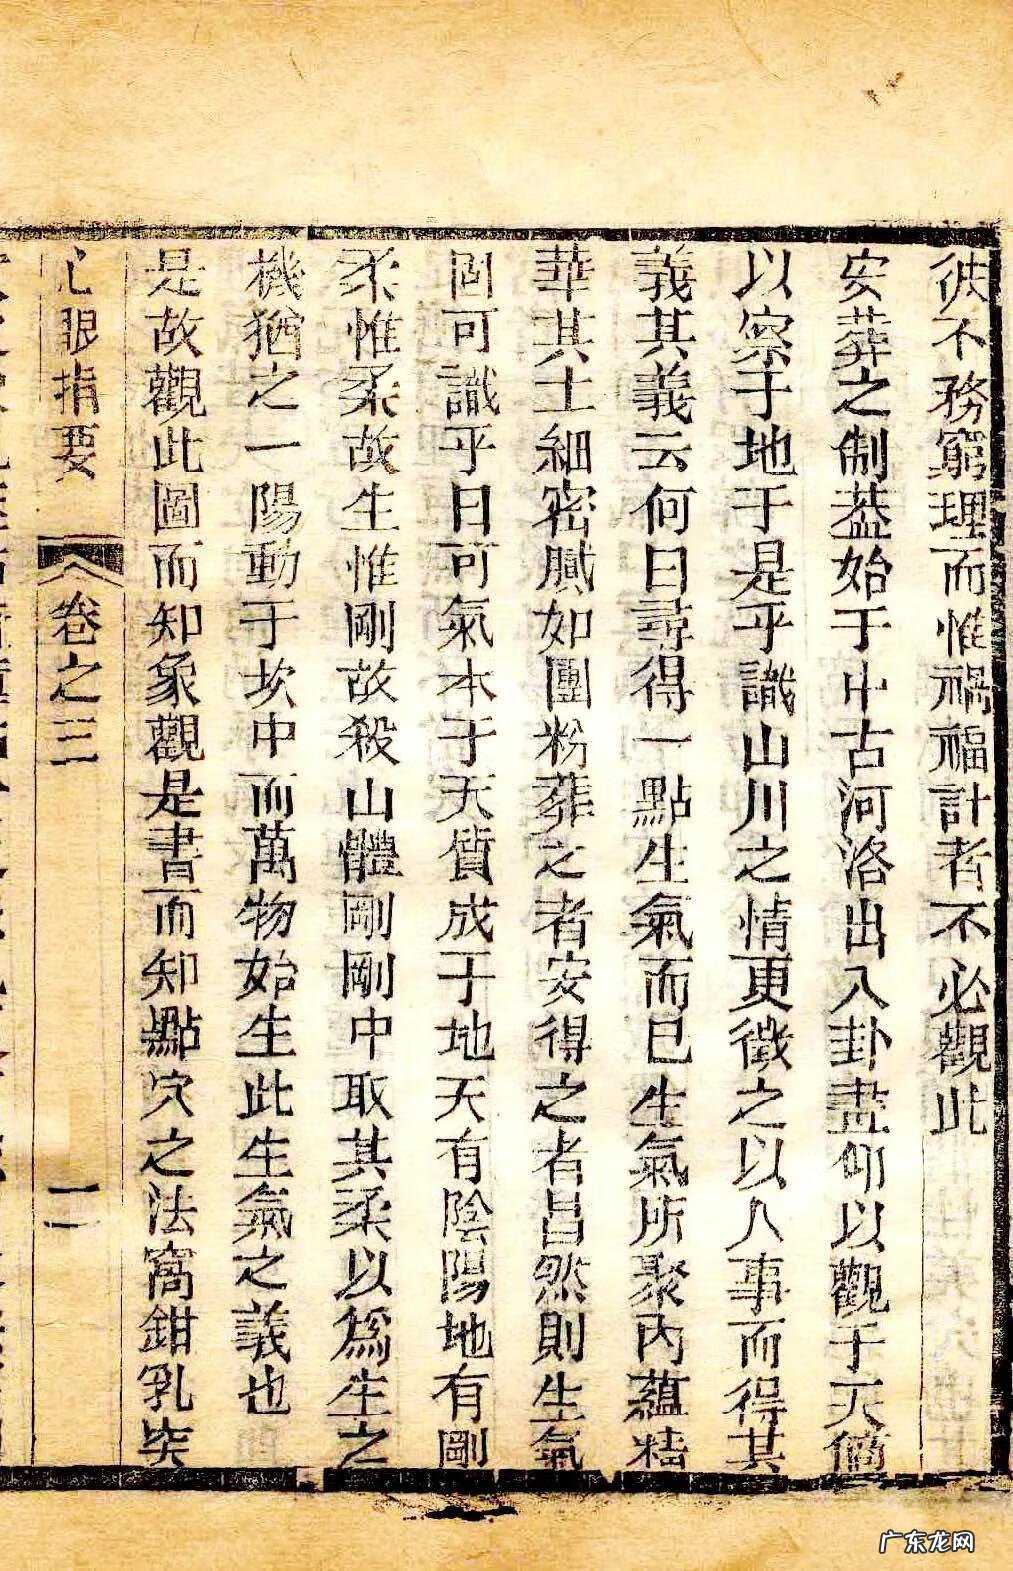 彼不務窮理而惟禍福計者不必觀此
安葬之制葢始于中古河洛出八卦畫仰以觀于天俯
以察于地于是乎識山川之情更徵之以人事而得其
義其義云何曰尋得一點生氣而已生氣所聚內蘊精
華其土細密膩如團粉葬之者安得之者昌然則生氣
固可識乎曰可氣本于天質成于地天有陰陽地有剛
柔惟柔故生惟剛故殺山體剛剛中取其柔以爲生之
機猶之一陽動于坎中而萬物始生此生氣之義也
是故觀此圖而知象觀是書而知點穴之法窩鉗乳突
心眼指要 卷之三 二
广东龙网